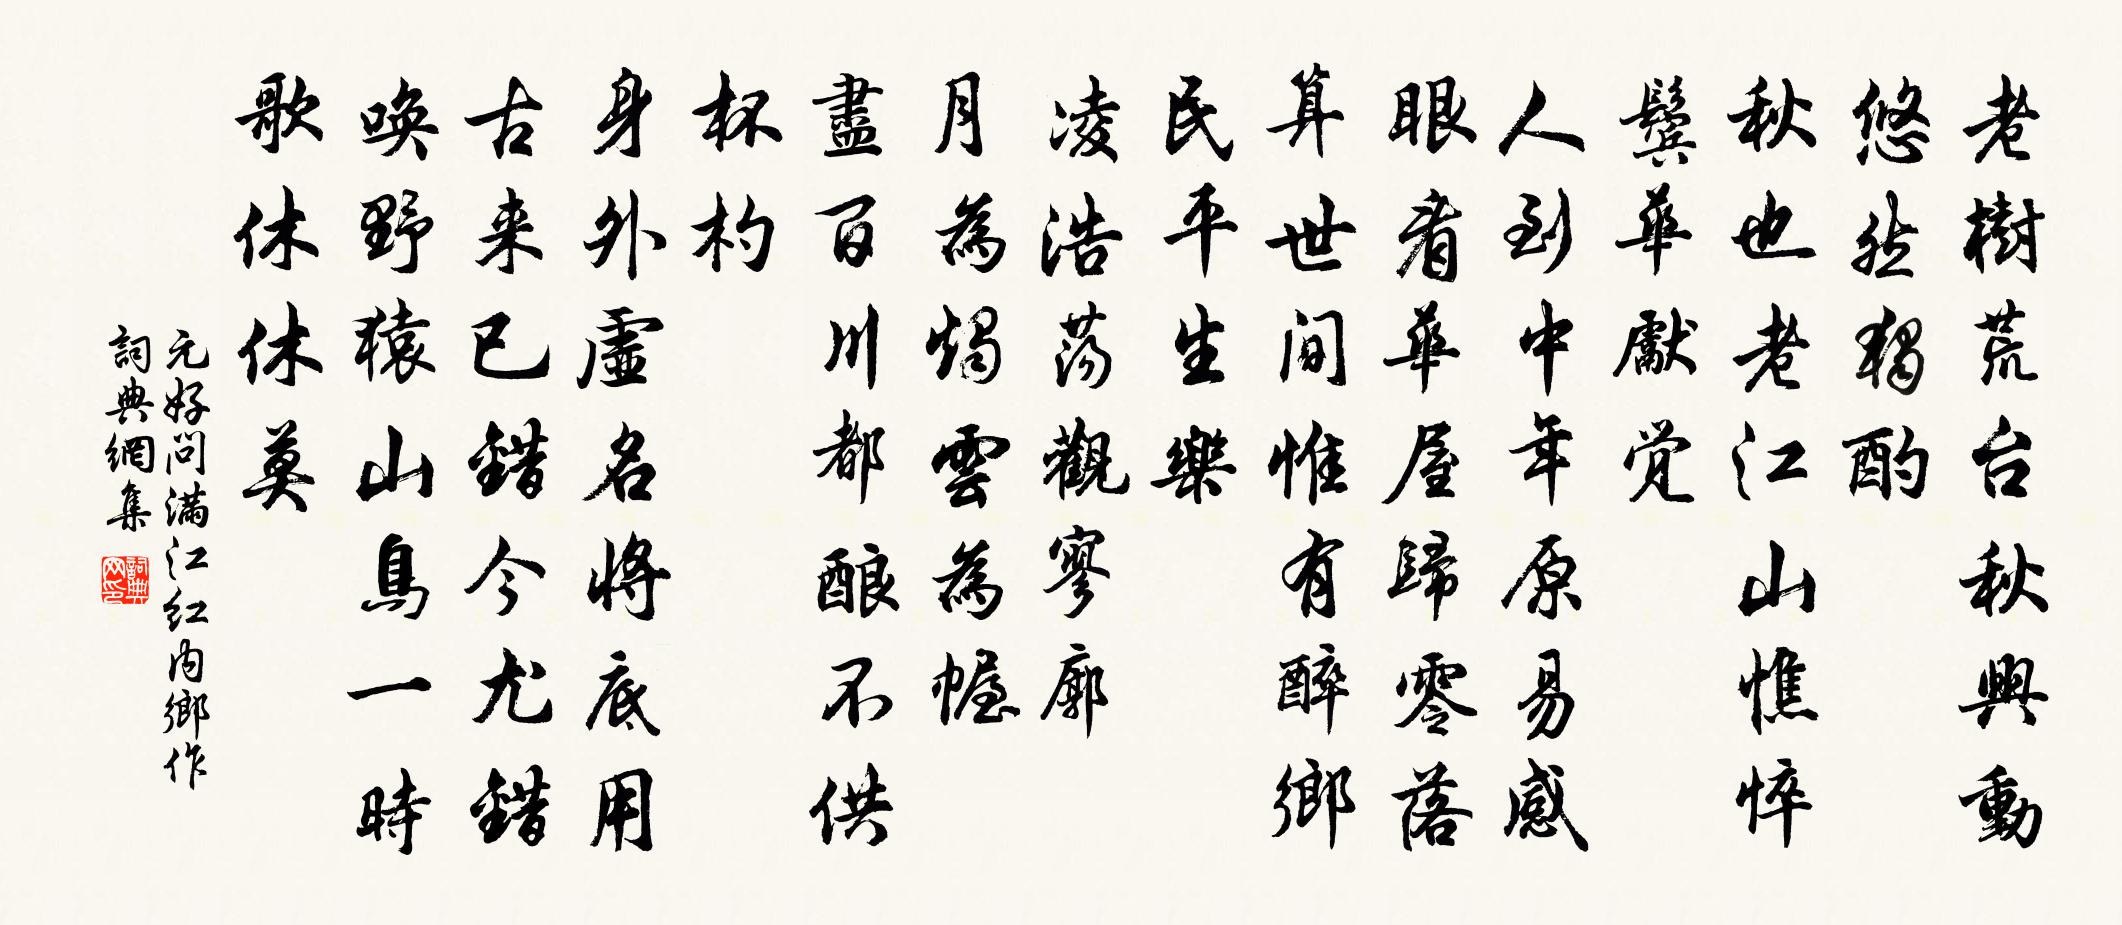 老樹荒台秋興動
悠然獨酌
秋也老江山憔悴
鬢華獻覚
人到中年原易感
眼看華屋歸零落
算世間惟有醉鄉
民平生樂
凌浩蕩觀寥廓
月為燭雲為幄
盡百川都酿不供
杯杓
身外虛名將底用
古来已錯今尤錯
喚野猿山鳥一時
歌休休莫
元好問滿江红内鄉作
詞典網集
詞典网印